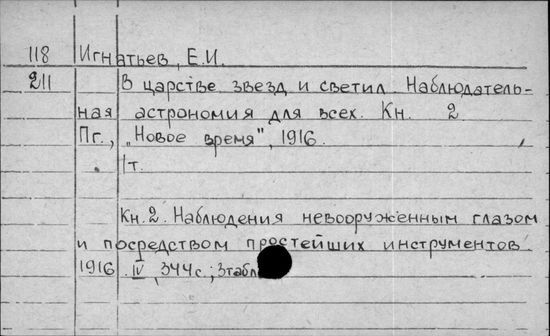 118 Игнатьев, Е.И.
211 В царстве звезд и светил. Наблюдатель-
ная астрономия для всех. Кн. 2.
Пг., „Новое время", 1916.
1т.
Кн.2. Наблюдения невооруженным глазом
и посредством простейших инструментов.
1916. IV, 344с.; 3табл